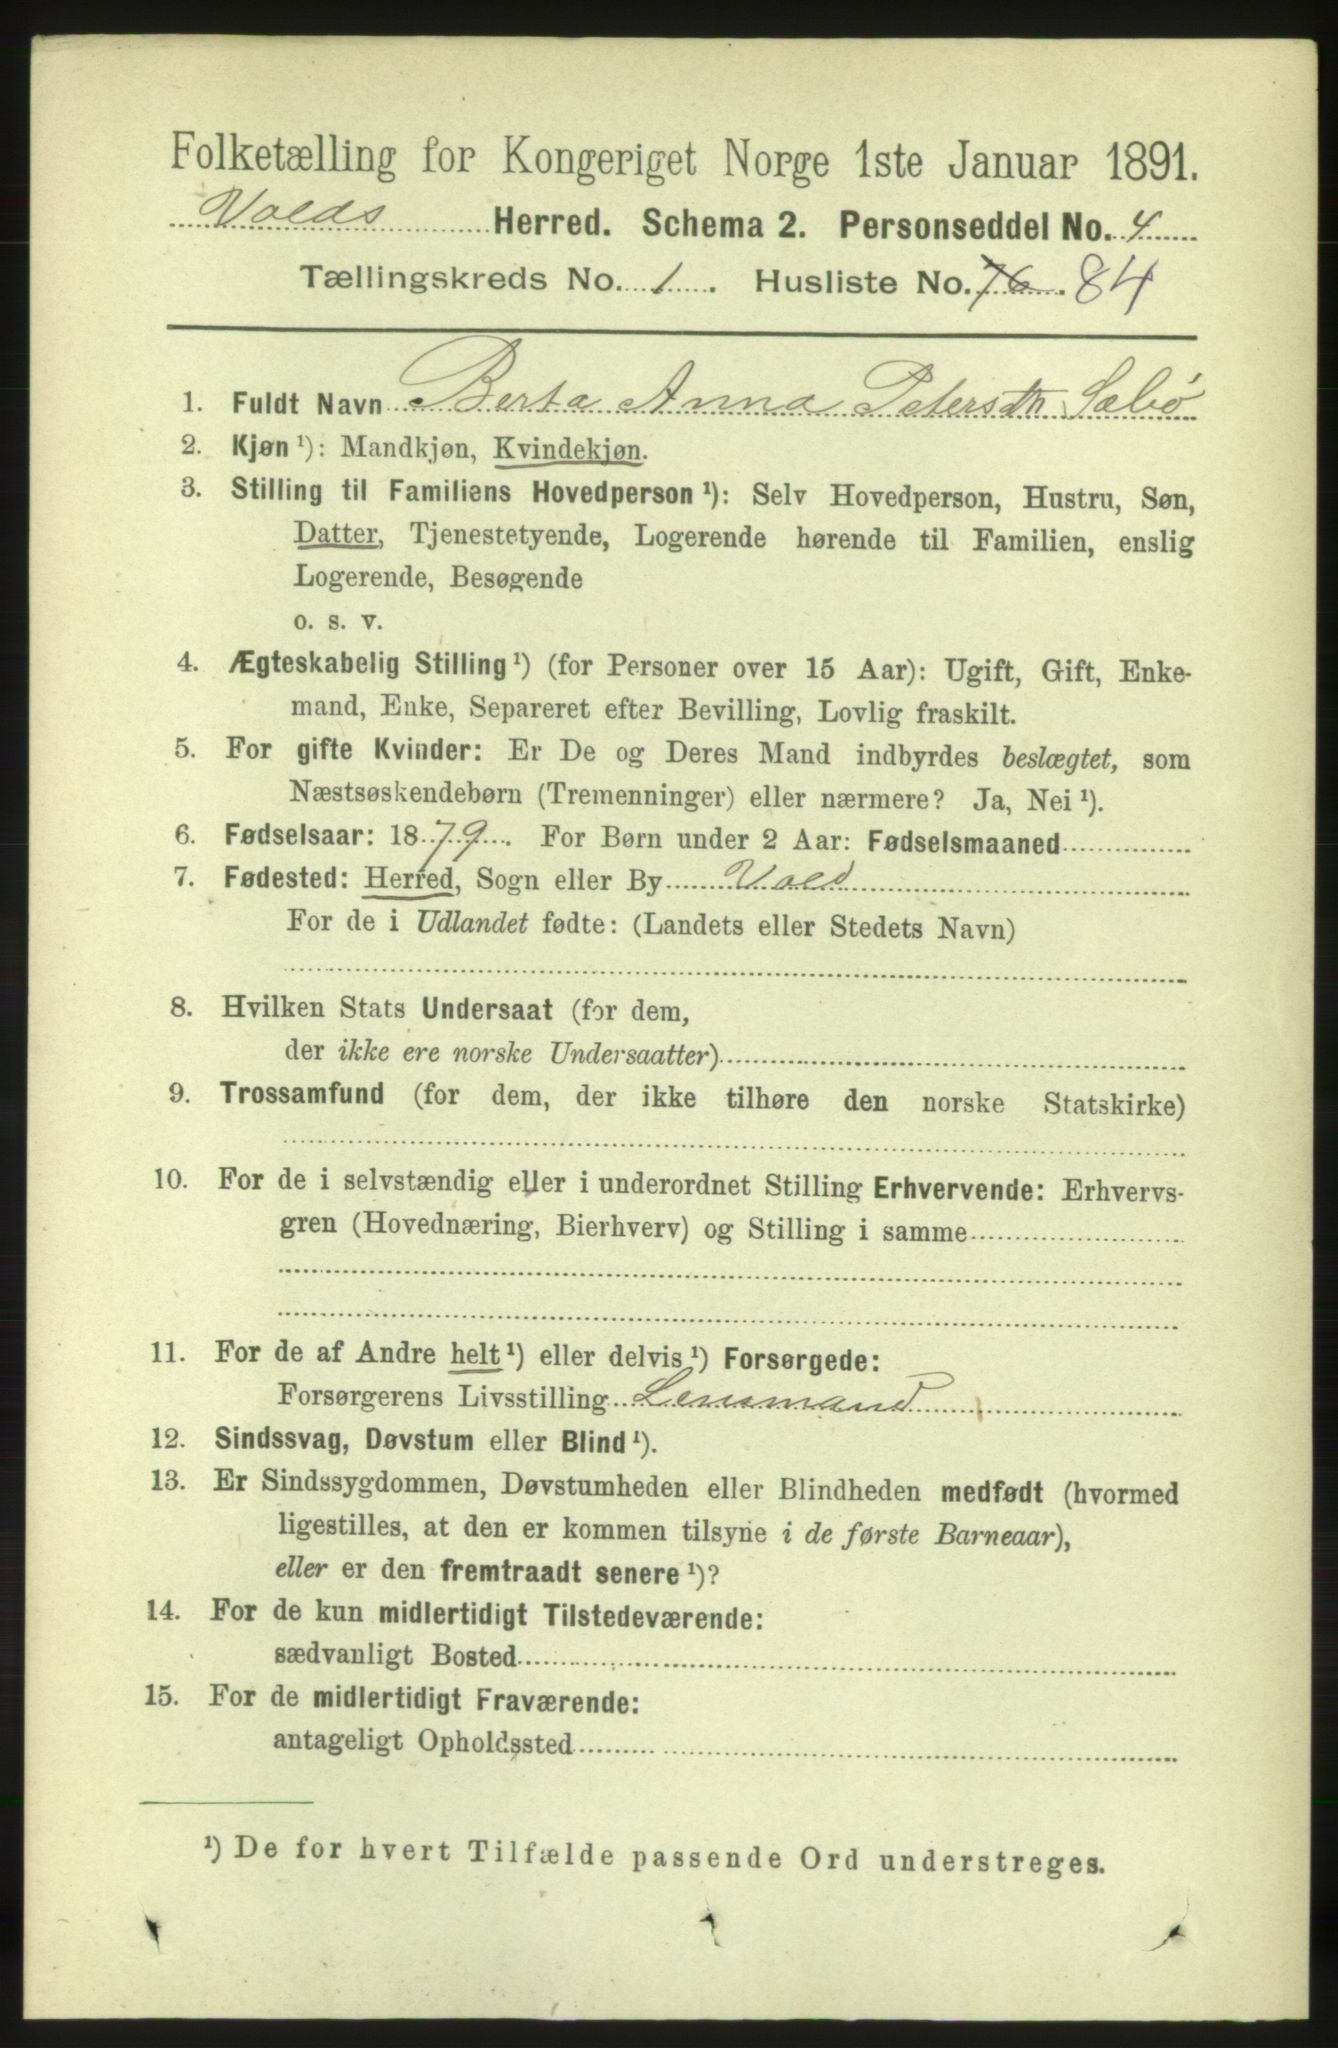 Folketælling for Kongeriget Norge 1ste Januar 1891.
Volds Herred. Schema 2. Personseddel No. 4
Tællingskreds No. 1. Husliste No. 76. 84
1. Fuldt Navn Berta Anna Petersdtr Sæbø
2. Kjøn ¹): Mandkjøn, Kvindekjøn.
3. Stilling til Familiens Hovedperson ¹): Selv Hovedperson, Hustru, Søn,
Datter, Tjenestetyende, Logerende hørende til Familien, enslig
Logerende, Besøgende
o. s. v.
4. Ægteskabelig Stilling ¹) (for Personer over 15 Aar): Ugift, Gift, Enke-
mand, Enke, Separeret efter Bevilling, Lovlig fraskilt.
5. For gifte Kvinder: Er De og Deres Mand indbyrdes beslægtet, som
Næstsøskendebørn (Tremenninger) eller nærmere? Ja, Nei ¹).
6. Fødselsaar: 1879. For Børn under 2 Aar: Fødselsmaaned
7. Fødested: Herred, Sogn eller By Vold
For de i Udlandet fødte: (Landets eller Stedets Navn)
8. Hvilken Stats Undersaat (for dem,
der ikke ere norske Undersaatter)
9. Trossamfund (for dem, der ikke tilhøre den norske Statskirke)
10. For de i selvstændig eller i underordnet Stilling Erhvervende: Erhvervs-
gren (Hovednæring, Bierhverv) og Stilling i samme
11. For de af Andre helt ¹) eller delvis ¹) Forsørgede:
Forsørgerens Livsstilling Lensmand
12. Sindssvag, Døvstum eller Blind ¹).
13. Er Sindssygdommen, Døvstumheden eller Blindheden medfødt (hvormed
ligestilles, at den er kommen tilsyne i de første Barneaar),
eller er den fremtraadt senere ¹)?
14. For de kun midlertidigt Tilstedeværende:
sædvanligt Bosted
15. For de midlertidigt Fraværende:
antageligt Opholdssted
¹) De for hvert Tilfælde passende Ord understreges.